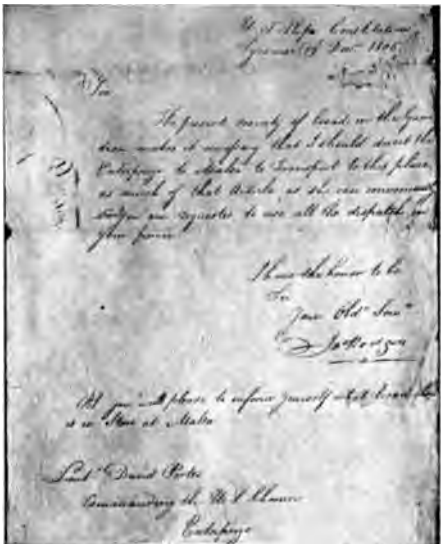 U S Ship Constitution
Syracuse 19 Decr 1805
Sir
The present scarcity of bread in the Squa
dron makes it necessary that I should direct the
Enterprize to Malta to transport to this place
as much of that Article as she can conveniently
You are requested to use all the dispatch in
your power
I have the honor to be
Sir
Your Obdt Servt
Jn Rodgers
You will please to inform yourself what bread
is in Store at Malta
Lieut David Porter
Commanding the U S Schooner
Enterprize